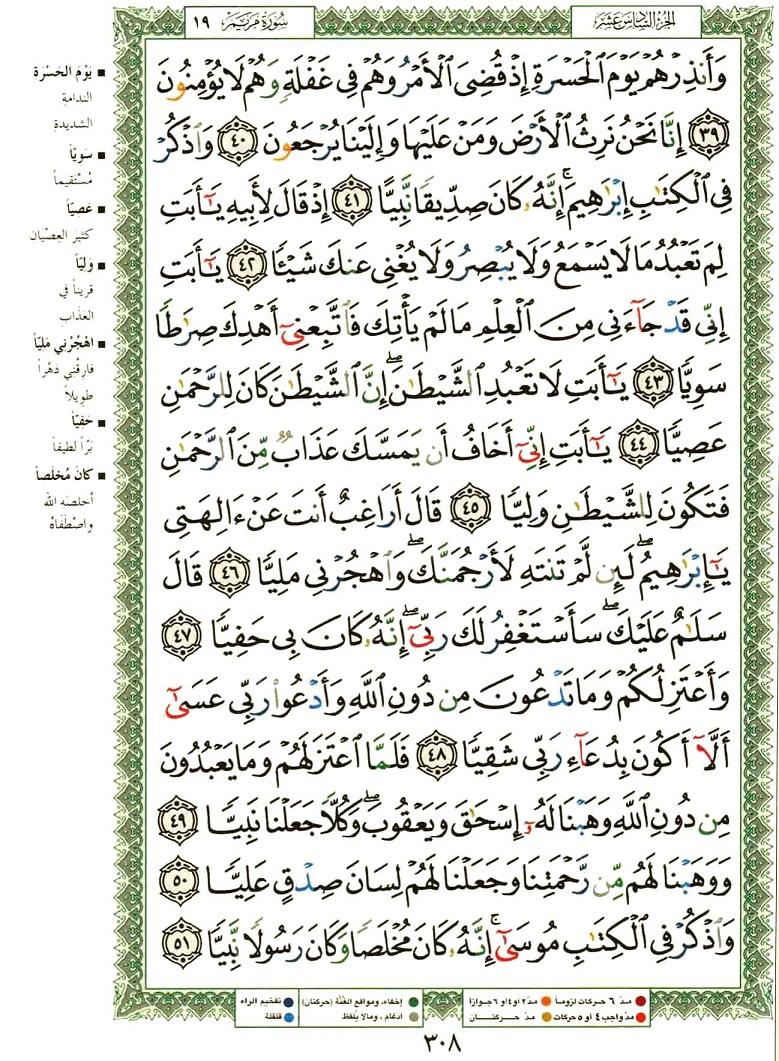 الجزء السادس عشر
سورة مريم ١٩
وَأَنذِرْهُمْ يَوْمَ ٱلْحَسْرَةِ إِذْ قُضِىَ ٱلْأَمْرُ وَهُمْ فِى غَفْلَةٍ وَهُمْ لَا يُؤْمِنُونَ
٣٩ إِنَّا نَحْنُ نَرِثُ ٱلْأَرْضَ وَمَنْ عَلَيْهَا وَإِلَيْنَا يُرْجَعُونَ ٤٠ وَٱذْكُرْ
فِى ٱلْكِتَٰبِ إِبْرَٰهِيمَ ۚ إِنَّهُۥ كَانَ صِدِّيقًا نَّبِيًّا ٤١ إِذْ قَالَ لِأَبِيهِ يَٰٓأَبَتِ
لِمَ تَعْبُدُ مَا لَا يَسْمَعُ وَلَا يُبْصِرُ وَلَا يُغْنِى عَنكَ شَيْـًٔا ٤٢ يَٰٓأَبَتِ
إِنِّى قَدْ جَآءَنِى مِنَ ٱلْعِلْمِ مَا لَمْ يَأْتِكَ فَٱتَّبِعْنِىٓ أَهْدِكَ صِرَٰطًا
سَوِيًّا ٤٣ يَٰٓأَبَتِ لَا تَعْبُدِ ٱلشَّيْطَٰنَ ۖ إِنَّ ٱلشَّيْطَٰنَ كَانَ لِلرَّحْمَٰنِ
عَصِيًّا ٤٤ يَٰٓأَبَتِ إِنِّىٓ أَخَافُ أَن يَمَسَّكَ عَذَابٌ مِّنَ ٱلرَّحْمَٰنِ
فَتَكُونَ لِلشَّيْطَٰنِ وَلِيًّا ٤٥ قَالَ أَرَاغِبٌ أَنتَ عَنْ ءَالِهَتِى
يَٰٓإِبْرَٰهِيمُ ۖ لَئِن لَّمْ تَنتَهِ لَأَرْجُمَنَّكَ ۖ وَٱهْجُرْنِى مَلِيًّا ٤٦ قَالَ
سَلَٰمٌ عَلَيْكَ ۖ سَأَسْتَغْفِرُ لَكَ رَبِّىٓ ۖ إِنَّهُۥ كَانَ بِى حَفِيًّا ٤٧
وَأَعْتَزِلُكُمْ وَمَا تَدْعُونَ مِن دُونِ ٱللَّهِ وَأَدْعُوا۟ رَبِّى عَسَىٰٓ
أَلَّآ أَكُونَ بِدُعَآءِ رَبِّى شَقِيًّا ٤٨ فَلَمَّا ٱعْتَزَلَهُمْ وَمَا يَعْبُدُونَ
مِن دُونِ ٱللَّهِ وَهَبْنَا لَهُۥٓ إِسْحَٰقَ وَيَعْقُوبَ ۖ وَكُلًّا جَعَلْنَا نَبِيًّا ٤٩
وَوَهَبْنَا لَهُم مِّن رَّحْمَتِنَا وَجَعَلْنَا لَهُمْ لِسَانَ صِدْقٍ عَلِيًّا ٥٠
وَٱذْكُرْ فِى ٱلْكِتَٰبِ مُوسَىٰٓ ۚ إِنَّهُۥ كَانَ مُخْلَصًا وَكَانَ رَسُولًا نَّبِيًّا ٥١
يَوْمَ الحَسْرَة
الندامةِ
الشديدةِ
سَوِيّاً
مُسْتقيماً
عَصِيّاً
كثيرَ العِصْيان
وَلِيّاً
قريناً في
العَذاب
اهْجُرْني مَلِيّاً
فارِقْني دَهْراً
طويلاً
حَفِيّاً
بَرّاً لطيفاً
كانَ مُخْلَصاً
أخلصَه الله
واصْطَفَاهُ
مدّ ٦ حركات لزوماً
مدّ ٢ او ٤ او ٦ جوازاً
إخفاء، ومواقع الغُنَّة (حركتان)
تفخيم الراء
مدّ واجب ٤ او ٥ حركات
مدّ حركتان
ادغام، ومالا يُلفظ
قلقلة
٣٠٨